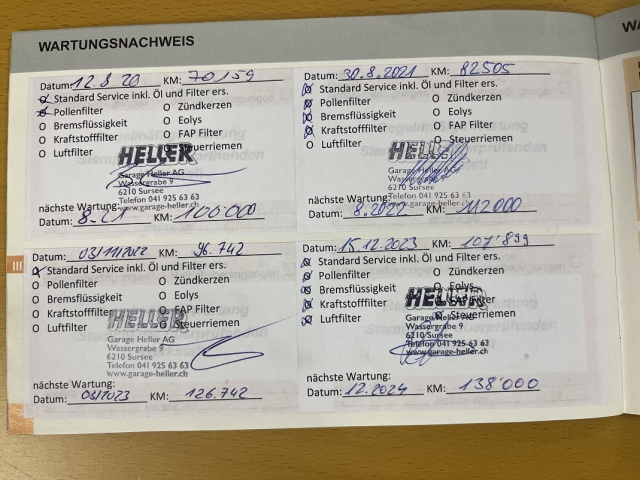 WARTUNGSNACHWEIS
Datum: 12.8.20 KM: 70159
Standard Service inkl. Öl und Filter ers.
Pollenfilter O Zündkerzen
O Bremsflüssigkeit O Eolys
O Kraftstofffilter O FAP Filter
O Luftfilter O Steuerriemen
HELLER
Garage Heller AG
Wassergrabe 9
6210 Sursee
Telefon 041 925 63 63
www.garage-heller.ch
nächste Wartung:
Datum: 8.21 KM: 100'000
Datum: 30.8.2021 KM: 82505
Standard Service inkl. Öl und Filter ers.
Pollenfilter O Zündkerzen
Bremsflüssigkeit O Eolys
Kraftstofffilter O FAP Filter
O Luftfilter O Steuerriemen
HELLER
Garage Heller AG
Wassergrabe 9
6210 Sursee
Telefon 041 925 63 63
www.garage-heller.ch
nächste Wartung:
Datum: 8.2022 KM: 112000
Datum: 03/11/2022 KM: 96.742
Standard Service inkl. Öl und Filter ers.
O Pollenfilter O Zündkerzen
O Bremsflüssigkeit O Eolys
O Kraftstofffilter O FAP Filter
O Luftfilter O Steuerriemen
HELLER
Garage Heller AG
Wassergrabe 9
6210 Sursee
Telefon 041 925 63 63
www.garage-heller.ch
nächste Wartung:
Datum: 03/2023 KM: 126.742
Datum: 15.12.2023 KM: 107'899
Standard Service inkl. Öl und Filter ers.
Pollenfilter O Zündkerzen
Bremsflüssigkeit O Eolys
Kraftstofffilter FAP Filter
Luftfilter Steuerriemen
HELLER
Garage Heller AG
Wassergrabe 9
6210 Sursee
Telefon 041 925 63 63
www.garage-heller.ch
nächste Wartung:
Datum: 12.2024 KM: 138'000